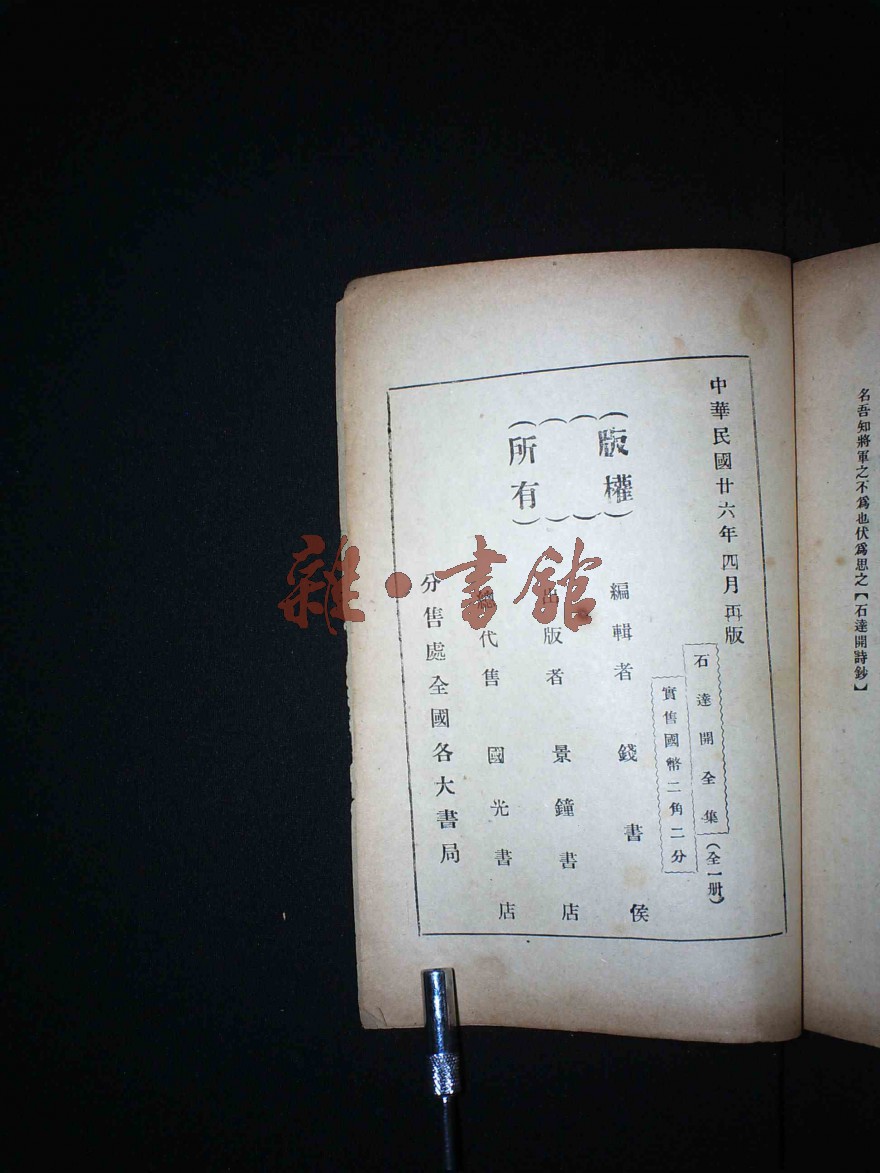 名吾知將軍之不爲也伏爲思之【石達開詩鈔】
中華民國廿六年四月再版
石達開全集（全一册）
實售國幣二角二分
版權
所有
編輯者 錢書侯
出版者 景鐘書店
總代售 國光書店
分售處全國各大書局
雜·書館